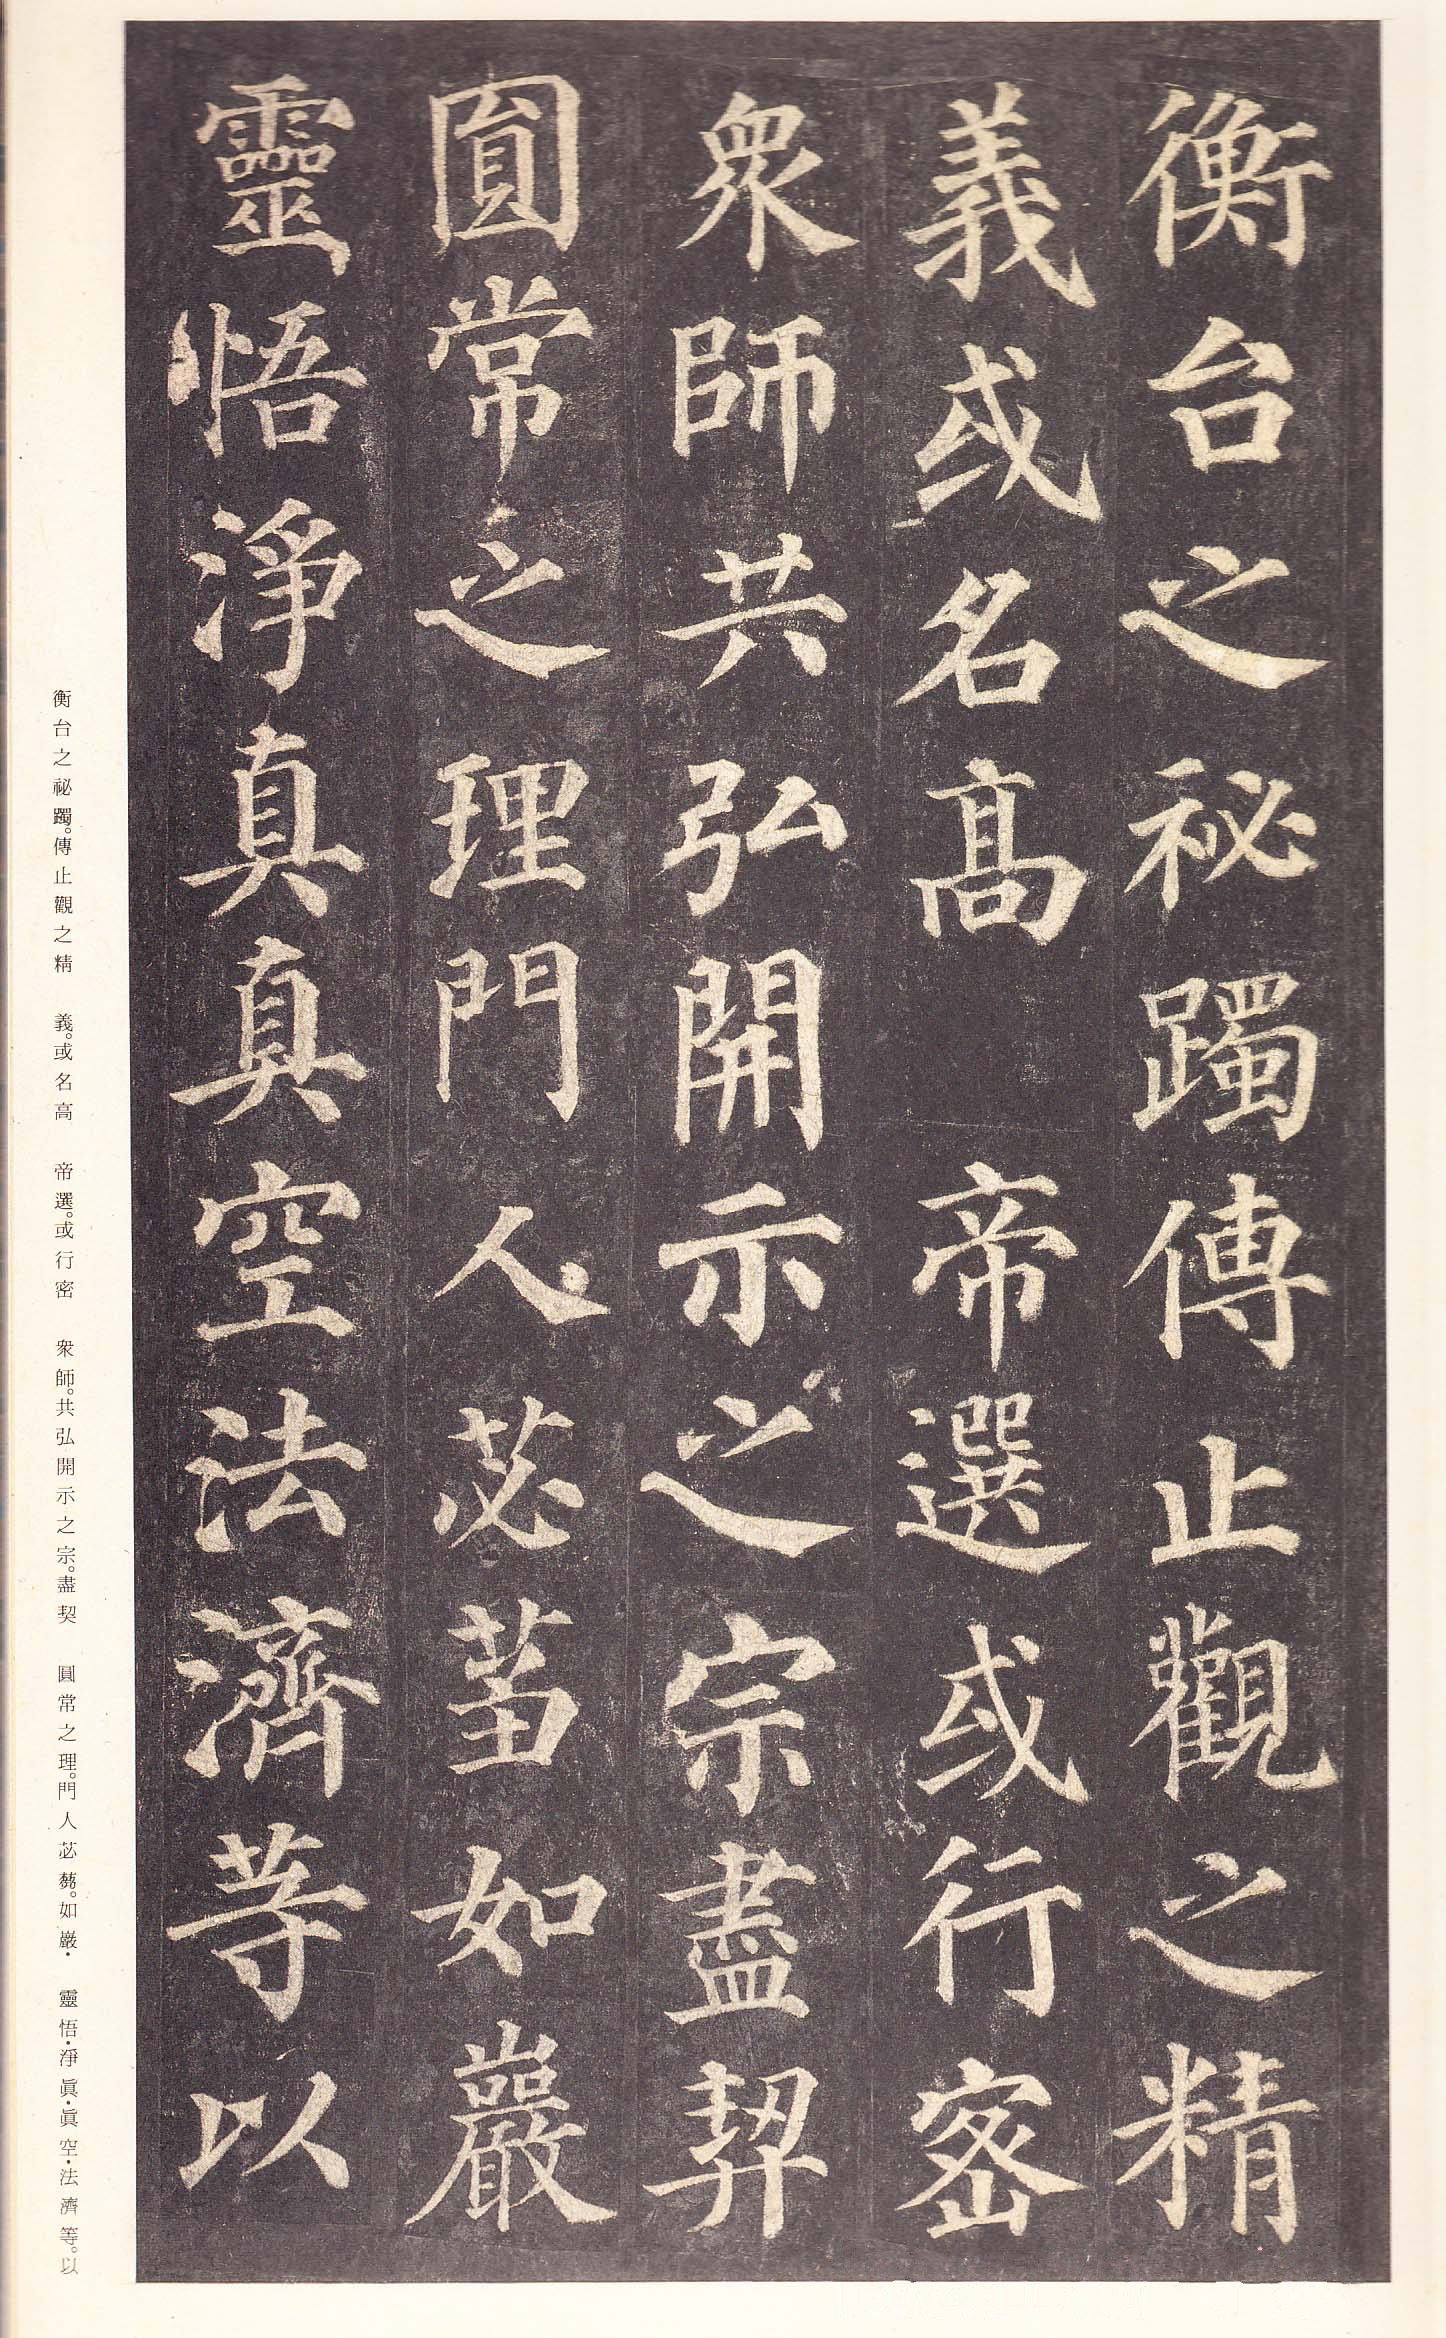 衡台之祕躅傳止觀之精
義或名高　帝選或行密
衆師共弘開示之宗盡契
圓常之理門人苾蒭如巖
靈悟淨真真空法濟等以
衡台之祕躅。傳止觀之精　義。或名高　帝選。或行密　衆師。共弘開示之宗。盡契　圓常之理。門人苾蒭。如巖・　靈悟・淨眞・眞空・法濟等。以